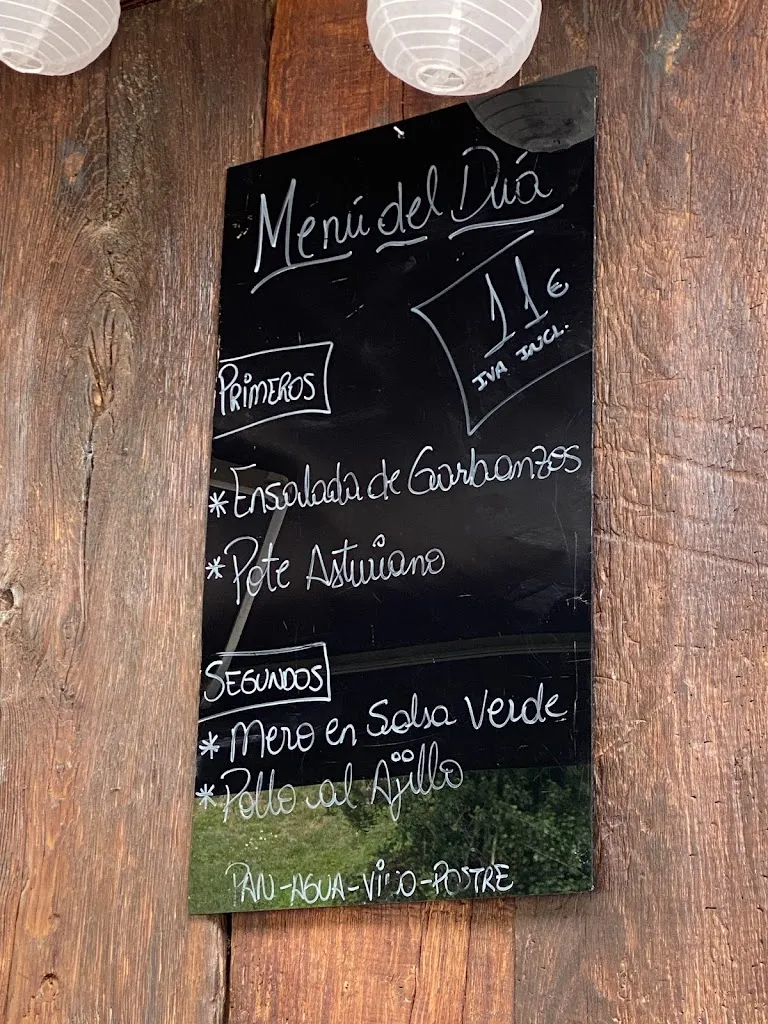 Menú del Día
11€
IVA INCL.
PRIMEROS
*Ensalada de Garbanzos
*Pote Asturiano
SEGUNDOS
*Mero en Salsa Verde
*Pollo al Ajillo
PAN-AGUA-VINO-POSTRE